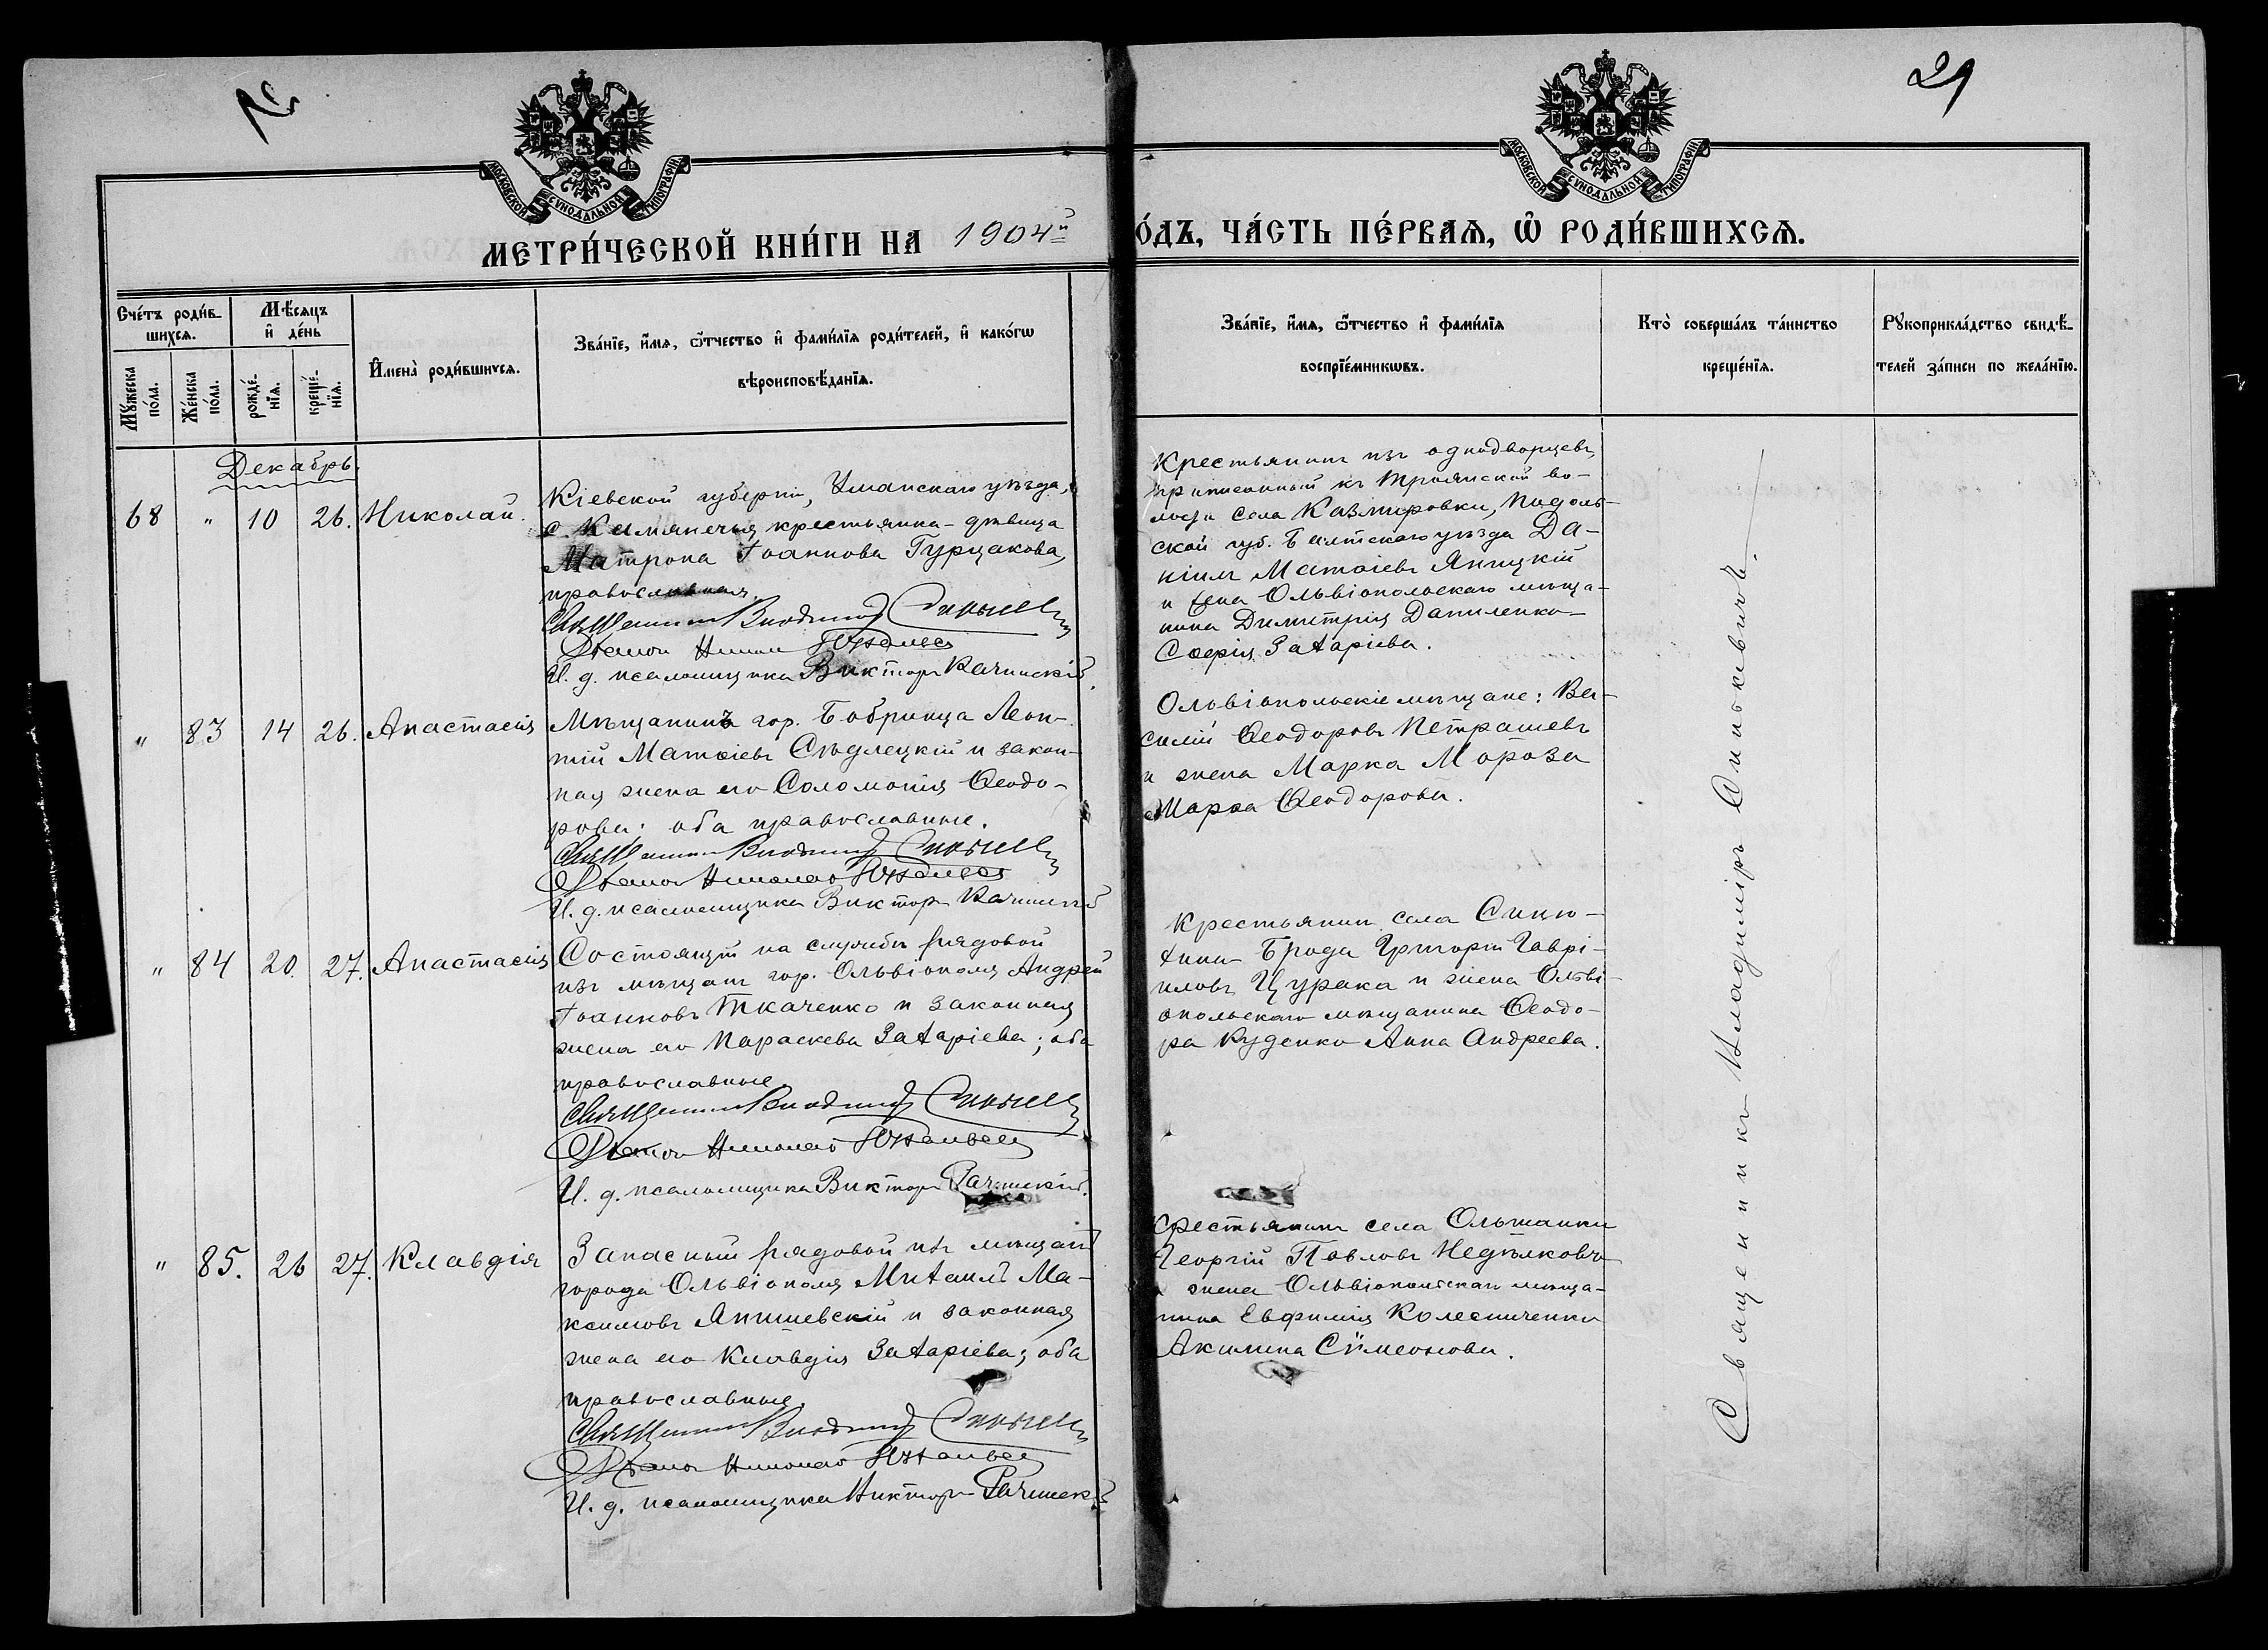 29
МОСКОВСКОЙ СѴНОДАЛЬНОЙ ТИПОГРАФІИ
МОСКОВСКОЙ СѴНОДАЛЬНОЙ ТИПОГРАФІИ
МЕТРИ́ЧЕСКОЙ КНИ́ГИ НА 1904й
О́ДЪ, ЧА́СТЬ ПЕ́РВАѦ, Ѡ҆ РОДИ́ВШИХСѦ.
Сче́тъ роди́в-
шихсѧ.
Мꙋ́жеска по́ла.
Же́нска по́ла.
Мѣ́сѧцъ
и҆ де́нь
рожде́-
нїѧ.
креще́-
нїѧ.
И҆мена̀ роди́вшихсѧ.
Зва́нїе, и҆́мѧ, ѻ҆́тчество и҆ фами́лїѧ роди́телей, и҆ како́гѡ
вѣроисповѣ́данїѧ.
Зва́нїе, и҆́мѧ, ѻ҆́тчество и҆ фами́лїѧ
воспрїе́мникѡвъ.
Кто̀ соверша́лъ та́инство
креще́нїѧ.
Рꙋкоприкла́дство свидѣ́-
телей за́писи по жела́нїю.
Декабрь.
68 " 10 26. Николай.
Кіевской губерніи, Уманскаго уѣзда,
крестьянка-дѣвица
Матрона Іоаннова Гурцакова,
православная.
Священникъ Владимиръ
Діаконъ Николай
И. д. псаломщика Викторъ Рачинскій.
Крестьянинъ изъ однодворцевъ,
приписанный къ Троянской во-
лости села Казмировки, Подоль-
ской губ. Балтскаго уѣзда Да-
ніилъ Матѳіевъ Яницкій
и жена Ольвіопольскаго мѣща-
нина Димитрія Даниленко
Софія Захаріева.
" 83 14 26. Анастасія
Мѣщанинъ гор. Бобринца Леон-
тій Матѳіевъ Сѣдлецкій и закон-
ная жена его Соломонія Ѳеодо-
рова; оба православные.
Священникъ Владимиръ
Діаконъ Николай
И. д. псаломщика Викторъ Рачинскій
Ольвіопольскіе мѣщане: Ва-
силій Ѳеодоровъ Петрашевъ
и жена Марка Мороза
Марѳа Ѳеодорова.
" 84 20. 27. Анастасія
Состоящій на службѣ рядовой
изъ мѣщанъ гор. Ольвіополя Андрей
Іоанновъ Ткаченко и законная
жена его Параскева Захаріева; оба
православные.
Священникъ Владимиръ
Діаконъ Николай
И. д. псаломщика Викторъ Рачинскій.
Крестьянинъ села Синю-
хина Брода Григорій Гаврі-
иловъ Цурака и жена Ольві-
опольскаго мѣщанина Ѳеодо-
ра Руденко Анна Андреева.
" 85. 26 27. Клавдія
Запасный рядовой изъ мѣщанъ
города Ольвіополя Михаилъ Ма-
ксимовъ Янишевскій и законная
жена его Клавдія Захаріева; оба
православные.
Священникъ Владимиръ
Діаконъ Николай
И. д. псаломщика Викторъ Рачинскій
Крестьянинъ села Ольшанки
Георгій Павловъ Недѣлковъ
и жена Ольвіопольскаго мѣща-
нина Евфимія Колесниченко
Акилина Сѵмеонова.
Священникъ Владиміръ